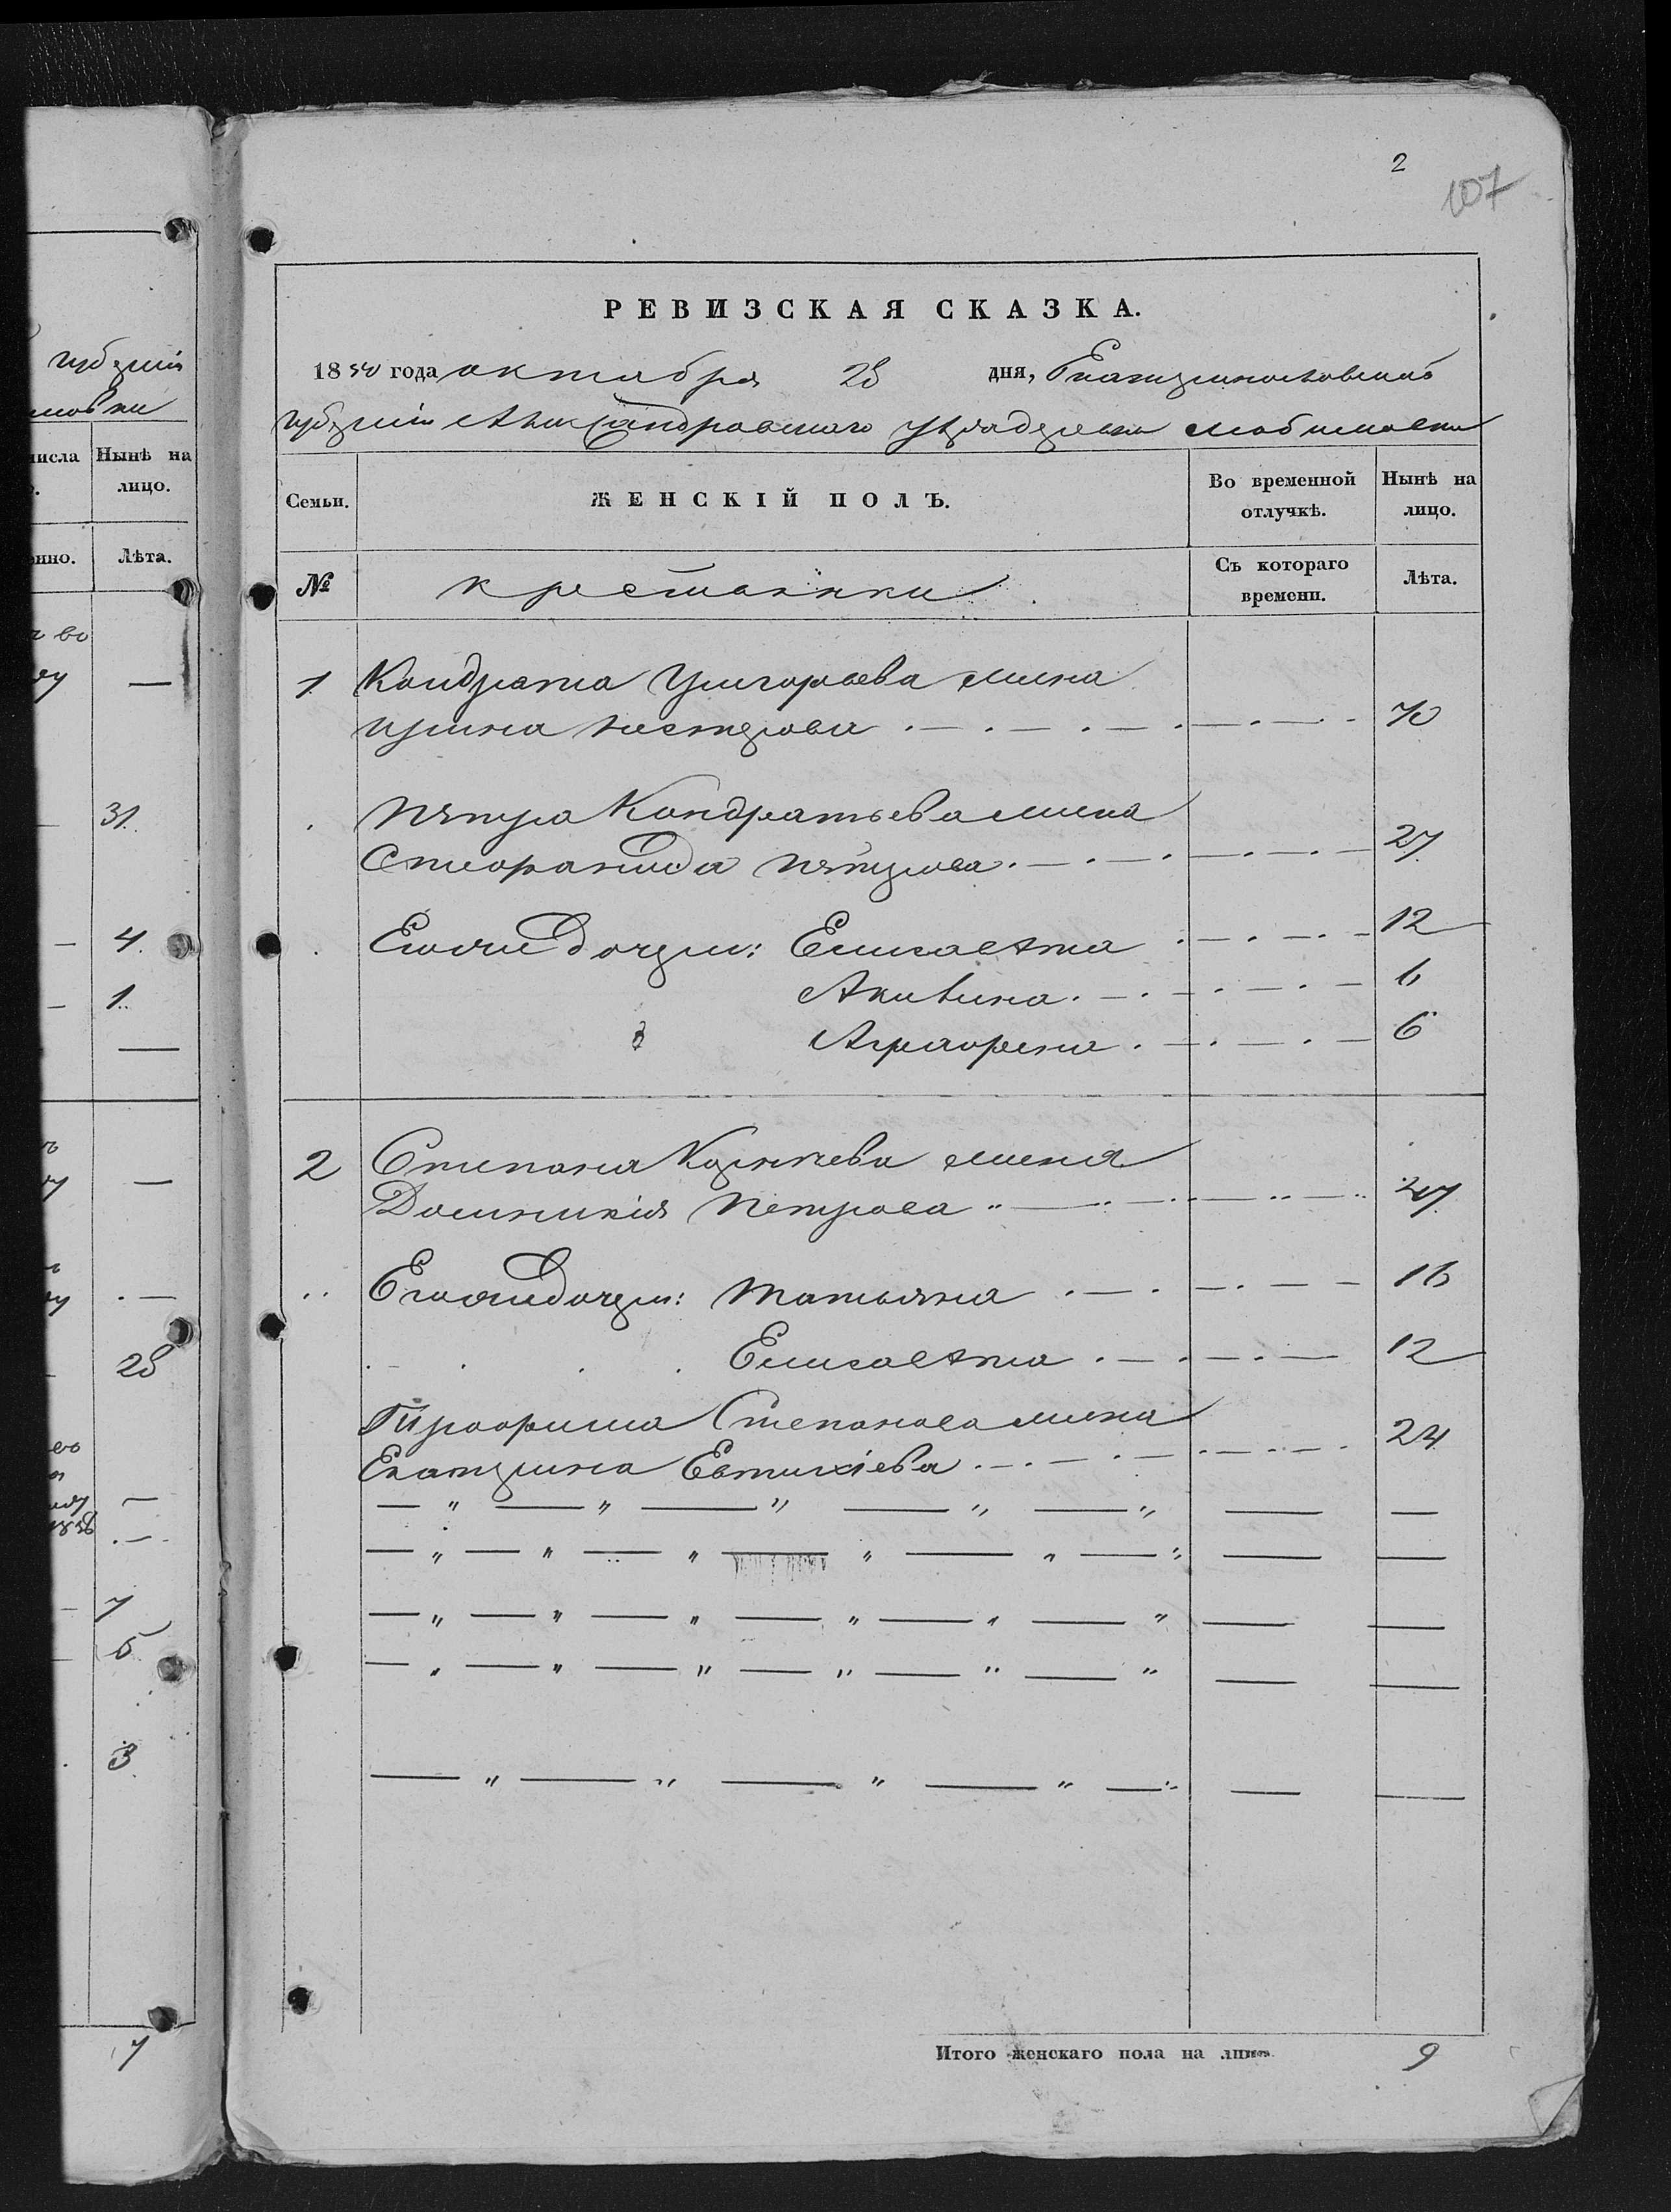 губерніи
2
107
РЕВИЗСКАЯ СКАЗКА.
1850 года октября 28 дня, Екатеринославской
губерніи Александровскаго уѣзда деревни Любимовки
числа Нынѣ на
лицо.
Лѣта.
Семьи. ЖЕНСКІЙ ПОЛЪ. Во временной отлучкѣ. Нынѣ на лицо.
№ крестьянки Съ котораго времени. Лѣта.
во
1 Кондрата Григорьева жена
Ирина Нестерова 70
31
Петра Кондратьева жена
Степанида Петрова 27
4
Еговые дочери: Елисавета 12
1
Акилина
Аграфена 6
2 Степана Корнѣева жена
Домникія Петрова 47
Еговые дочери: Татьяна 16
28
Елисавета 12
Трофима Степанова жена
Екатерина Евтихіева 24
7
5
3
7
Итого женскаго пола на лицо 9